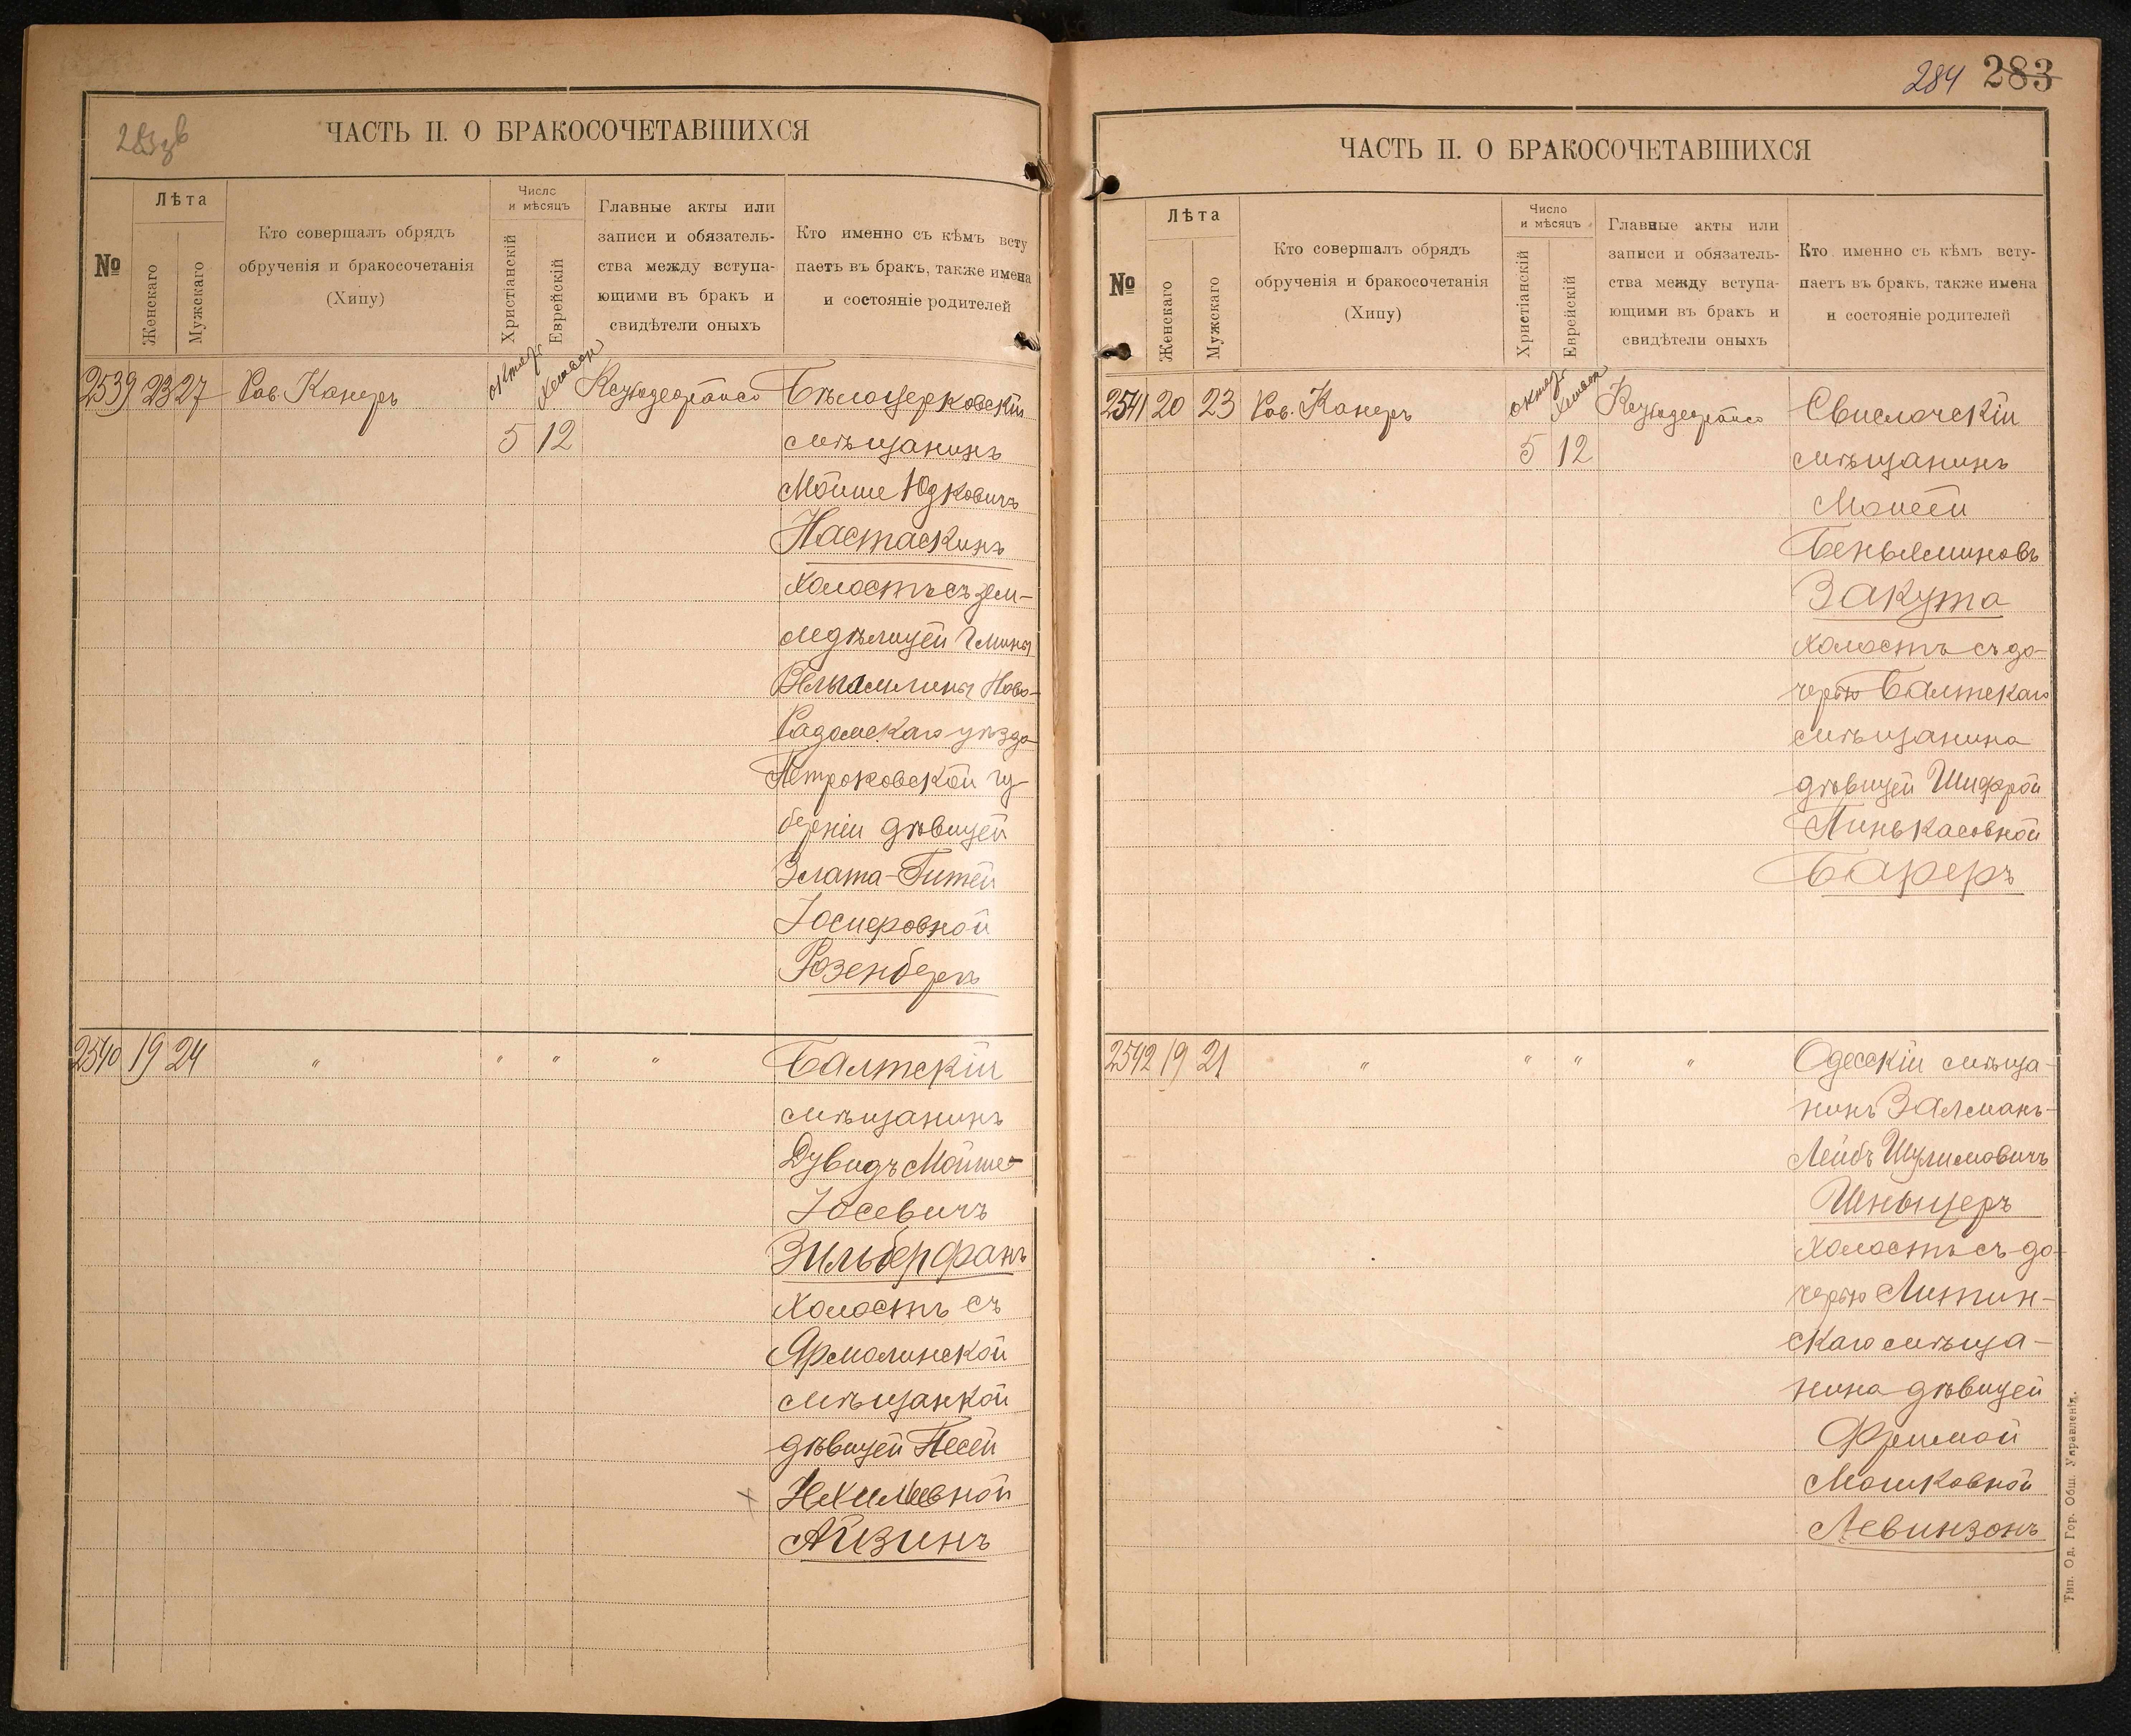 ЧАСТЬ II. О БРАКОСОЧЕТАВШИХСЯ
№
Лѣта
Женскаго
Мужскаго
Кто совершалъ обрядъ
обрученія и бракосочетанія
(Хипу)
Число
и мѣсяцъ
Христіанскій
Еврейскій
Главные акты или
записи и обязатель-
ства между вступа-
ющими въ бракъ и
свидѣтели оныхъ
Кто именно съ кѣмъ всту
паетъ въ бракъ, также имена
и состояніе родителей
2539 23 27 Рав. Канеръ октяр. Хешвон Бѣлоцерковскій
5 12 мѣщанинъ
Мойше Юдковичъ
Настаскинъ
холостъ съ зем-
ледѣлицей Гмины
Ново-
Радомскаго уѣзда
Петроковской гу-
берніи дѣвицей
Злата-Гитей
Іосифовной
Розенбергъ
2540 19 24 " " " " Балтскій
мѣщанинъ
Дувидъ Мойше-
Іосевичъ
Зильберфанъ
холостъ съ
Ярмолинской
мѣщанкой
дѣвицей Песей
Айзинъ
284 283
ЧАСТЬ II. О БРАКОСОЧЕТАВШИХСЯ
№
Лѣта
Женскаго
Мужскаго
Кто совершалъ обрядъ
обрученія и бракосочетанія
(Хипу)
Число
и мѣсяцъ
Христіанскій
Еврейскій
Главные акты или
записи и обязатель-
ства между вступа-
ющими въ бракъ и
свидѣтели оныхъ
Кто именно съ кѣмъ всту-
паетъ въ бракъ, также имена
и состояніе родителей
2541 20 23 Рав. Канеръ октяр. Хешвон Свислочскій
5 12 мѣщанинъ
Моисей
Беньяминовъ
Закута
холостъ съ до-
черью Балтскаго
мѣщанина
дѣвицей Шифрой
Пинькасовной
Бареръ
2542 19 21 " " " " Одесскій мѣща-
нинъ Залманъ-
Лейбъ Шулимовичъ
Шныцеръ
холостъ съ до-
черью Литин-
скаго мѣща-
нина дѣвицей
Фримой
Мошковной
Левинзонъ
Тип. Од. Гор. Общ. Управленія.